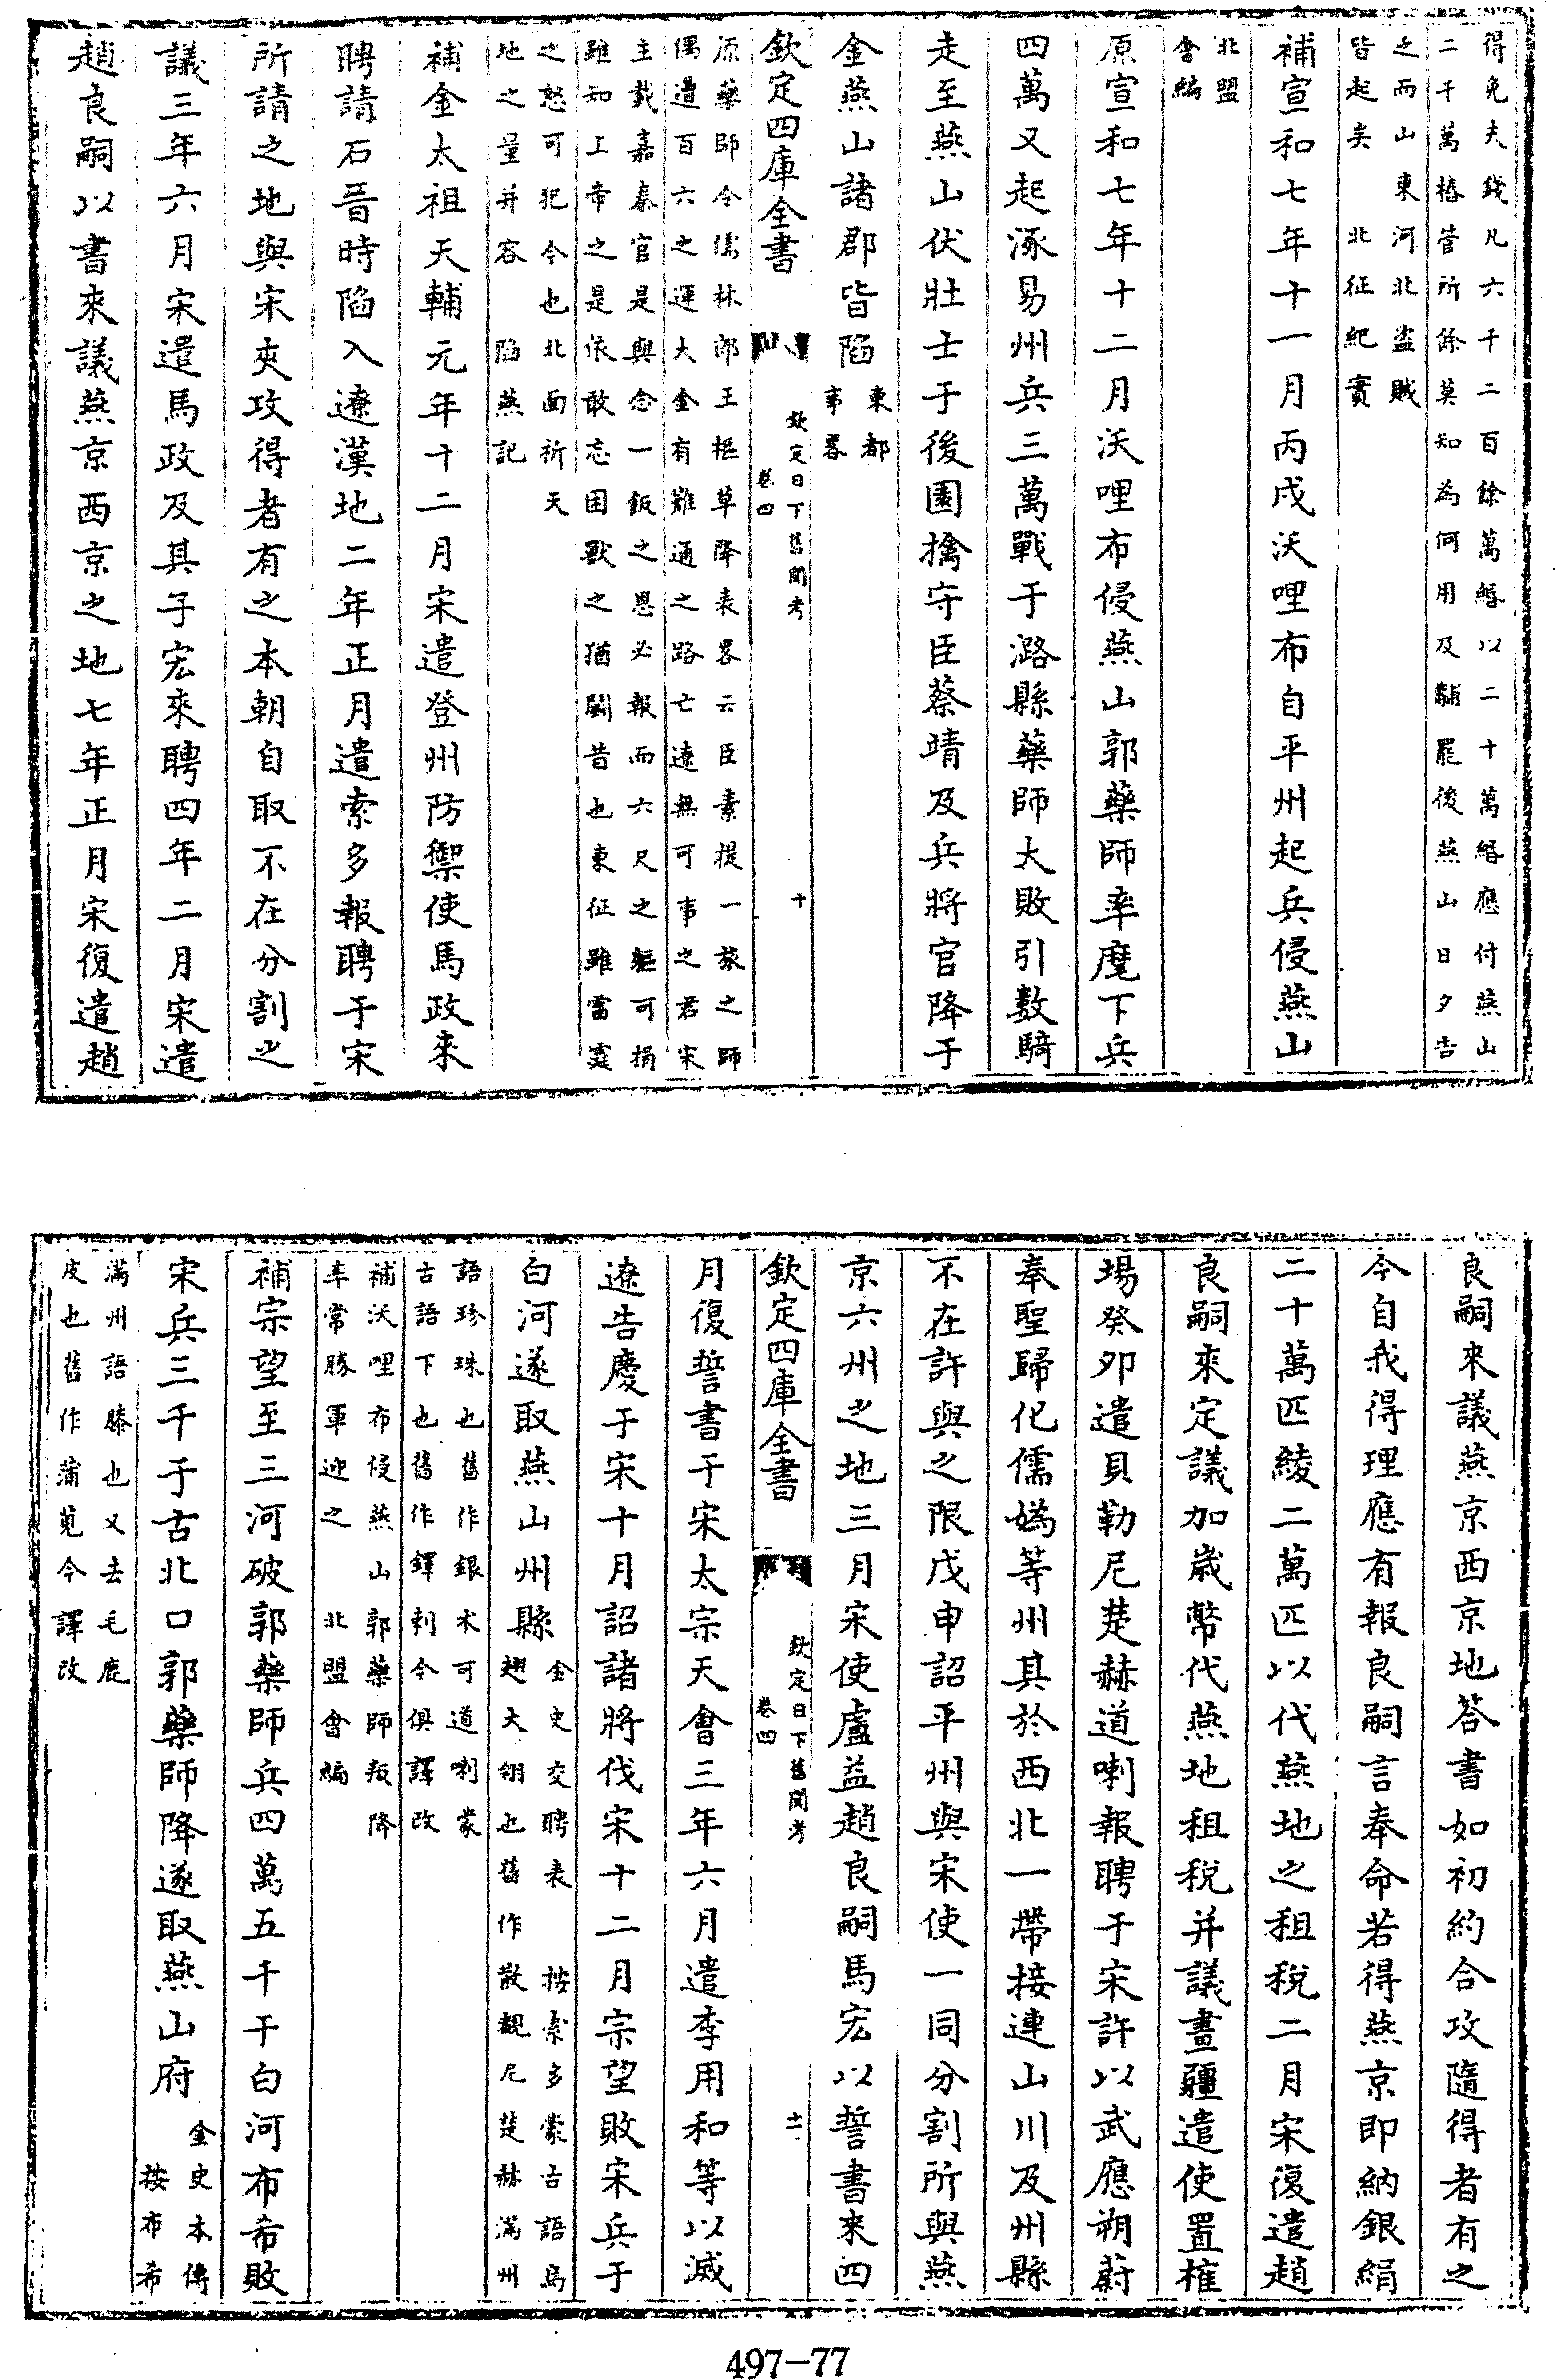 得免夫錢凡六千二百餘萬緡以二十萬緡應付燕山
二千萬樁管所餘莫知為何用及黼罷後燕山日夕告
乏而山東河北盜賊
皆起矣 北征紀實
補宣和七年十一月丙戌沃哩布自平州起兵侵燕山
北盟
會編
原宣和七年十二月沃哩布侵燕山郭藥師率麾下兵
四萬又起涿易州兵三萬戰于潞縣藥師大敗引數騎
走至燕山伏壯士于後園擒守臣蔡靖及兵將官降于
金燕山諸郡皆陷
東都
事畧
欽定四庫全書
欽定日下舊聞考
卷四
十
原藥師令儒林郎王樞草降表畧云臣素提一旅之師
偶遭百六之運大金有難通之路亡遼無可事之君宋
主載嘉秦官是與念一飯之恩必報而六尺之軀可捐
雖知上帝之是依敢忘困獸之猶鬬昔也東征雖雷霆
之怒可犯今也北面祈天
地之量并容 陷燕記
補金太祖天輔元年十二月宋遣登州防禦使馬政來
聘請石晉時陷入遼漢地二年正月遣索多報聘于宋
所請之地與宋夾攻得者有之本朝自取不在分割之
議三年六月宋遣馬政及其子宏來聘四年二月宋遣
趙良嗣以書來議燕京西京之地七年正月宋復遣趙
良嗣來議燕京西京地答書如初約合攻隨得者有之
今自我得理應有報良嗣言奉命若得燕京即納銀絹
二十萬匹綾二萬匹以代燕地之租稅二月宋復遣趙
良嗣來定議加歲幣代燕地租稅并議畫疆遣使置榷
場癸卯遣貝勒尼楚赫道喇報聘于宋許以武應朔蔚
奉聖歸化儒嬀等州其於西北一帶接連山川及州縣
不在許與之限戊申詔平州與宋使一同分割所與燕
京六州之地三月宋使盧益趙良嗣馬宏以誓書來四
欽定四庫全書
欽定日下舊聞考
卷四
十一
月復誓書于宋太宗天會三年六月遣李用和等以滅
遼告慶于宋十月詔諸將伐宋十二月宗望敗宋兵于
白河遂取燕山州縣
金史交聘表 按索多蒙古語烏
翅大翎也舊作散覩尼楚赫滿州
語珍珠也舊作銀术可道喇蒙
古語下也舊作鐸剌今俱譯改
補沃哩布侵燕山郭藥師叛降
率常勝軍迎之 北盟會編
補宗望至三河破郭藥師兵四萬五千于白河布希敗
宋兵三千于古北口郭藥師降遂取燕山府
金史本傳
按布希
滿州語膝也又去毛鹿
皮也舊作蒲莧今譯改
497-77